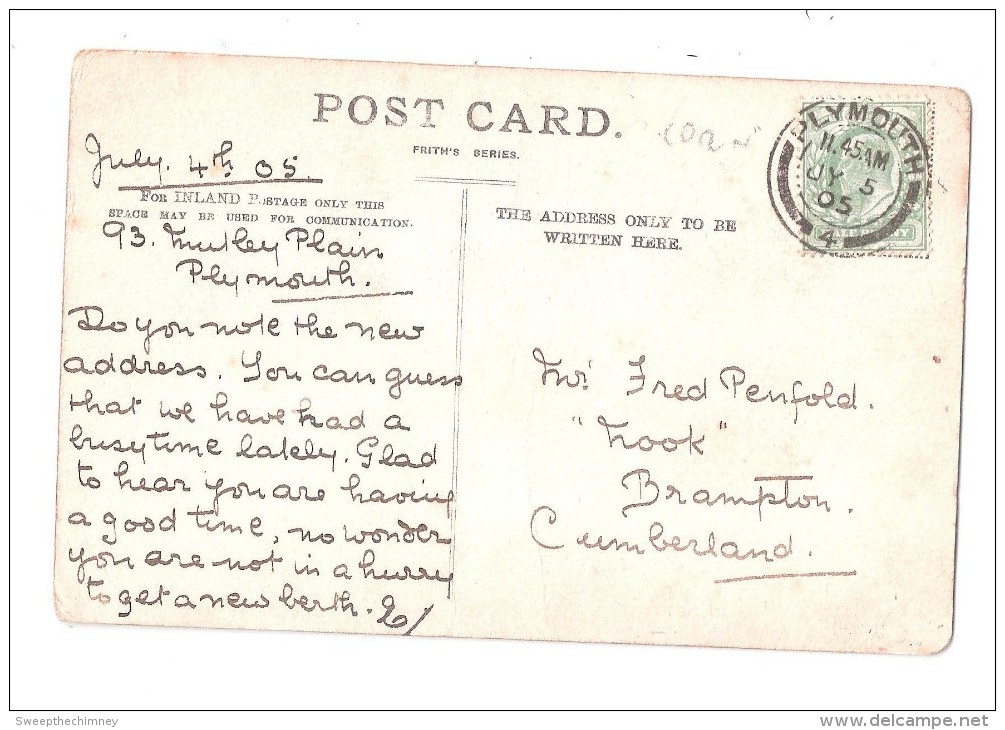 POST CARD.
FRITH'S SERIES.
July. 4th 05.
FOR INLAND POSTAGE ONLY THIS
SPACE MAY BE USED FOR COMMUNICATION.
THE ADDRESS ONLY TO BE
WRITTEN HERE.
PLYMOUTH
11.45AM
JY 5
05
4
93. Mutley Plain
Plymouth.
Do you note the new
address. You can guess
that we have had a
busy time lately. Glad
to hear you are having
a good time, no wonder
you are not in a hurry
to get a new berth.
Mr Fred Penfold.
"Nook"
Brampton.
Cumberland.
Sweepthechimney
www.delcampe.net